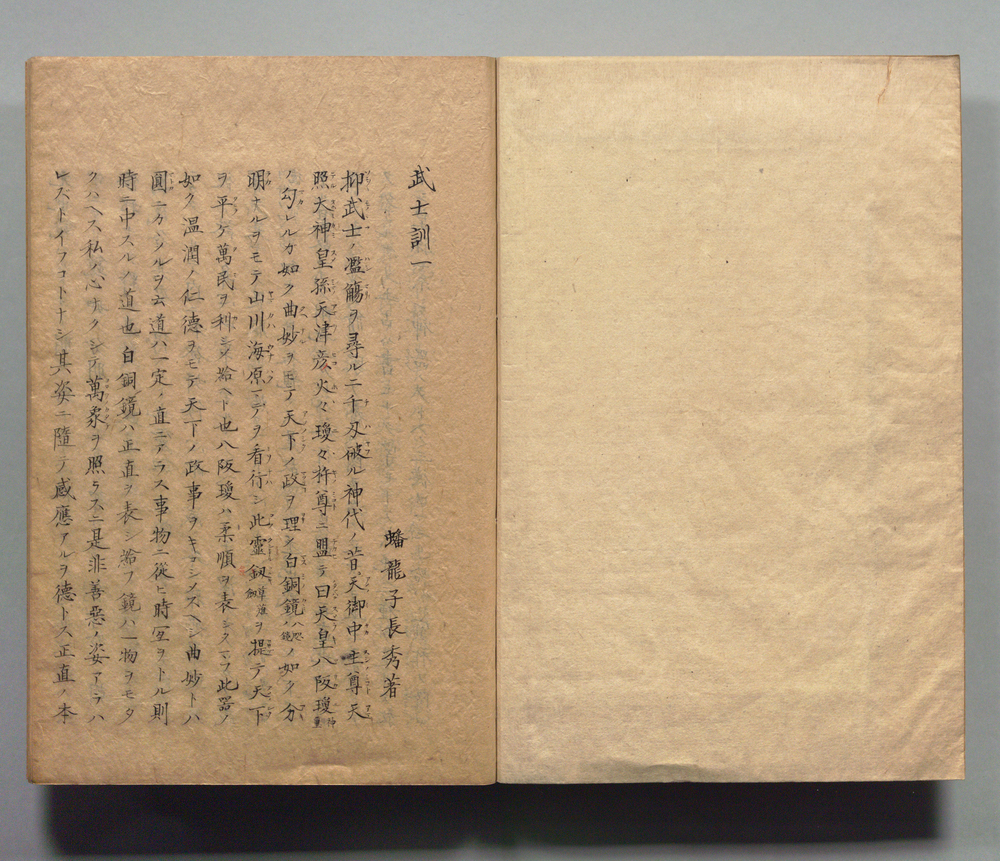 武士訓一
蟠龍子長秀著
抑武士ノ濫觴ヲ尋ルニ千刃破ル神代ノ昔天御中主尊天
照大神皇孫天津彦火々瓊々杵尊ニ盟テ曰天皇八阪瓊
ノ勾レルカ如ク曲妙ヲモテ天下ノ政ヲ理シ白銅鏡ノ如ク分
明ナルヲモテ山川海原マデヲ看行シ此靈釼ヲ提テ天下
ヲ平ケ萬民ヲ利シメ給ヘト也八阪瓊ハ柔順ヲ表シタマフ此器ノ
如ク温潤ノ仁德ヲモテ天下ノ政事ヲキコシメスヘシ曲妙トハ
圓ニクハシルヲ云道ハ一定ノ直ニアラス事物ニ從ヒ時宜ヲトル則
時ニ中スルノ道也白銅鏡ハ正直ヲ表シ給フ鏡ハ一物ヲモタ
クハヘス私ノ心ナクシテ萬象ヲ照ラスニ是非善惡ノ姿アラハ
レストイフコトナシ其姿ニ隨テ感應アルヲ德トス正直ノ本